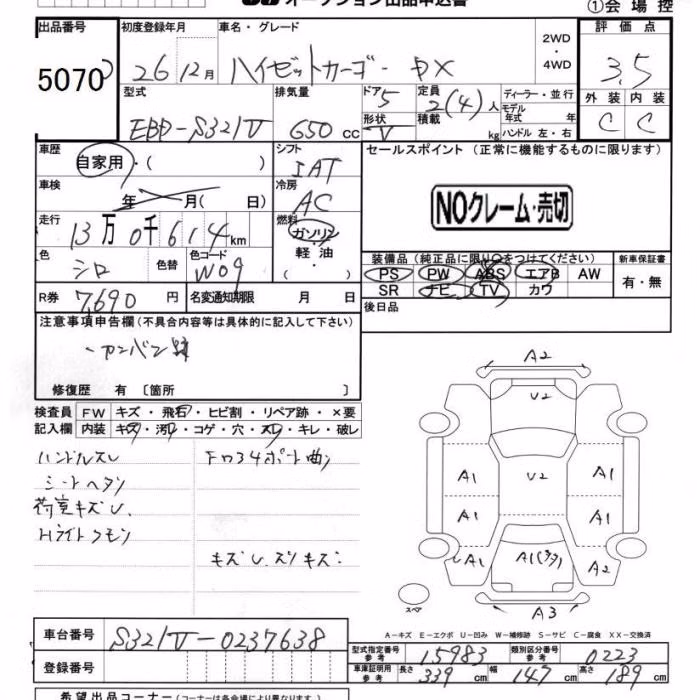 オークション出品申込書
①会場控
出品番号 初度登録年月 車名・グレード 2WD・4WD 評価点
5070 26 12月 ハイゼットカーゴ DX 3.5
型式 排気量 ドア 5 定員 2(4)人 ディーラー・並行 外装 内装
EBD-S321V 650cc 形状 V 積載 kg モデル年式 年 C C
ハンドル 左・右
車歴 自家用・( ) シフト IAT セールスポイント (正常に機能するものに限ります)
車検 年 月( 日) 冷房 AC
NOクレーム・売切
走行 13万0千614km 燃料 ガソリン・軽油・( )
色 シロ 色替 色コード W09
装備品(純正品に限り○をつけてください) 新車保証書
PS PW ABS エアB AW 有・無
SR ナビ TV カワ
R券 7,690円 名変通知期限 月 日
後日品
注意事項申告欄(不具合内容等は具体的に記入して下さい)
・カンバン跡
修復歴 有 〔箇所 〕
検査員 FW キズ・飛石・ヒビ割・リペア跡・×要
記入欄 内装 キズ・汚れ・コゲ・穴・スレ・キレ・破レ
ハンドルスレ
シートヘタリ
荷室キズU
Hライトクモリ
キズU.スリキズ.
A2
U2
A1 U2 A1
A1 A1
A1 A2
A3
スペア
A-キズ E-エクボ U-凹み W-補修跡 S-サビ C-腐食 XX-交換済
車台番号 S321V-0237638
登録番号
型式指定番号 参考 15983 類別区分番号 参考 0223
車車証明用 参考 長さ 339cm 幅 147cm 高さ 189cm
希望出品コーナー(コーナーは各会場により異なります)